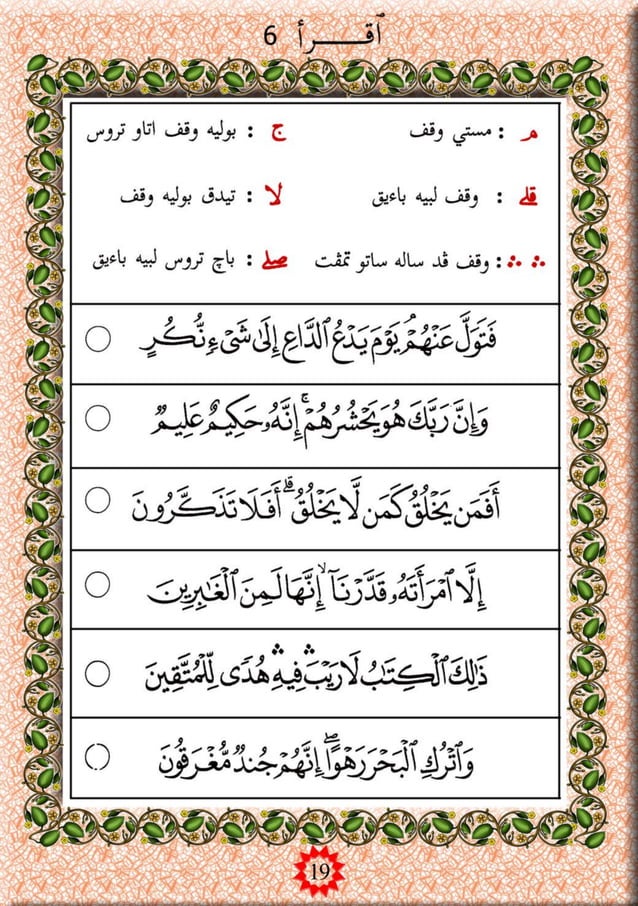 ٱقــــرأ 6
مـ : مستي وقف
ج : بوليه وقف اتاو تروس
قلے : وقف لبيه باءيق
لا : تيدق بوليه وقف
ۛ ۛ : وقف ڤد ساله ساتو تمڤت
صلے : باچ تروس لبيه باءيق
فَتَوَلَّ عَنْهُمْ ۘ يَوْمَ يَدْعُ ٱلدَّاعِ إِلَىٰ شَىْءٍ نُّكُرٍ
وَإِنَّ رَبَّكَ هُوَ يَحْشُرُهُمْ ۚ إِنَّهُۥ حَكِيمٌ عَلِيمٌ
أَفَمَن يَخْلُقُ كَمَن لَّا يَخْلُقُ ۗ أَفَلَا تَذَكَّرُونَ
إِلَّا ٱمْرَأَتَهُۥ قَدَّرْنَآ ۙ إِنَّهَا لَمِنَ ٱلْغَٰبِرِينَ
ذَٰلِكَ ٱلْكِتَٰبُ لَا رَيْبَ ۛ فِيهِ ۛ هُدًى لِّلْمُتَّقِينَ
وَٱتْرُكِ ٱلْبَحْرَ رَهْوًا ۖ إِنَّهُمْ جُندٌ مُّغْرَقُونَ
19